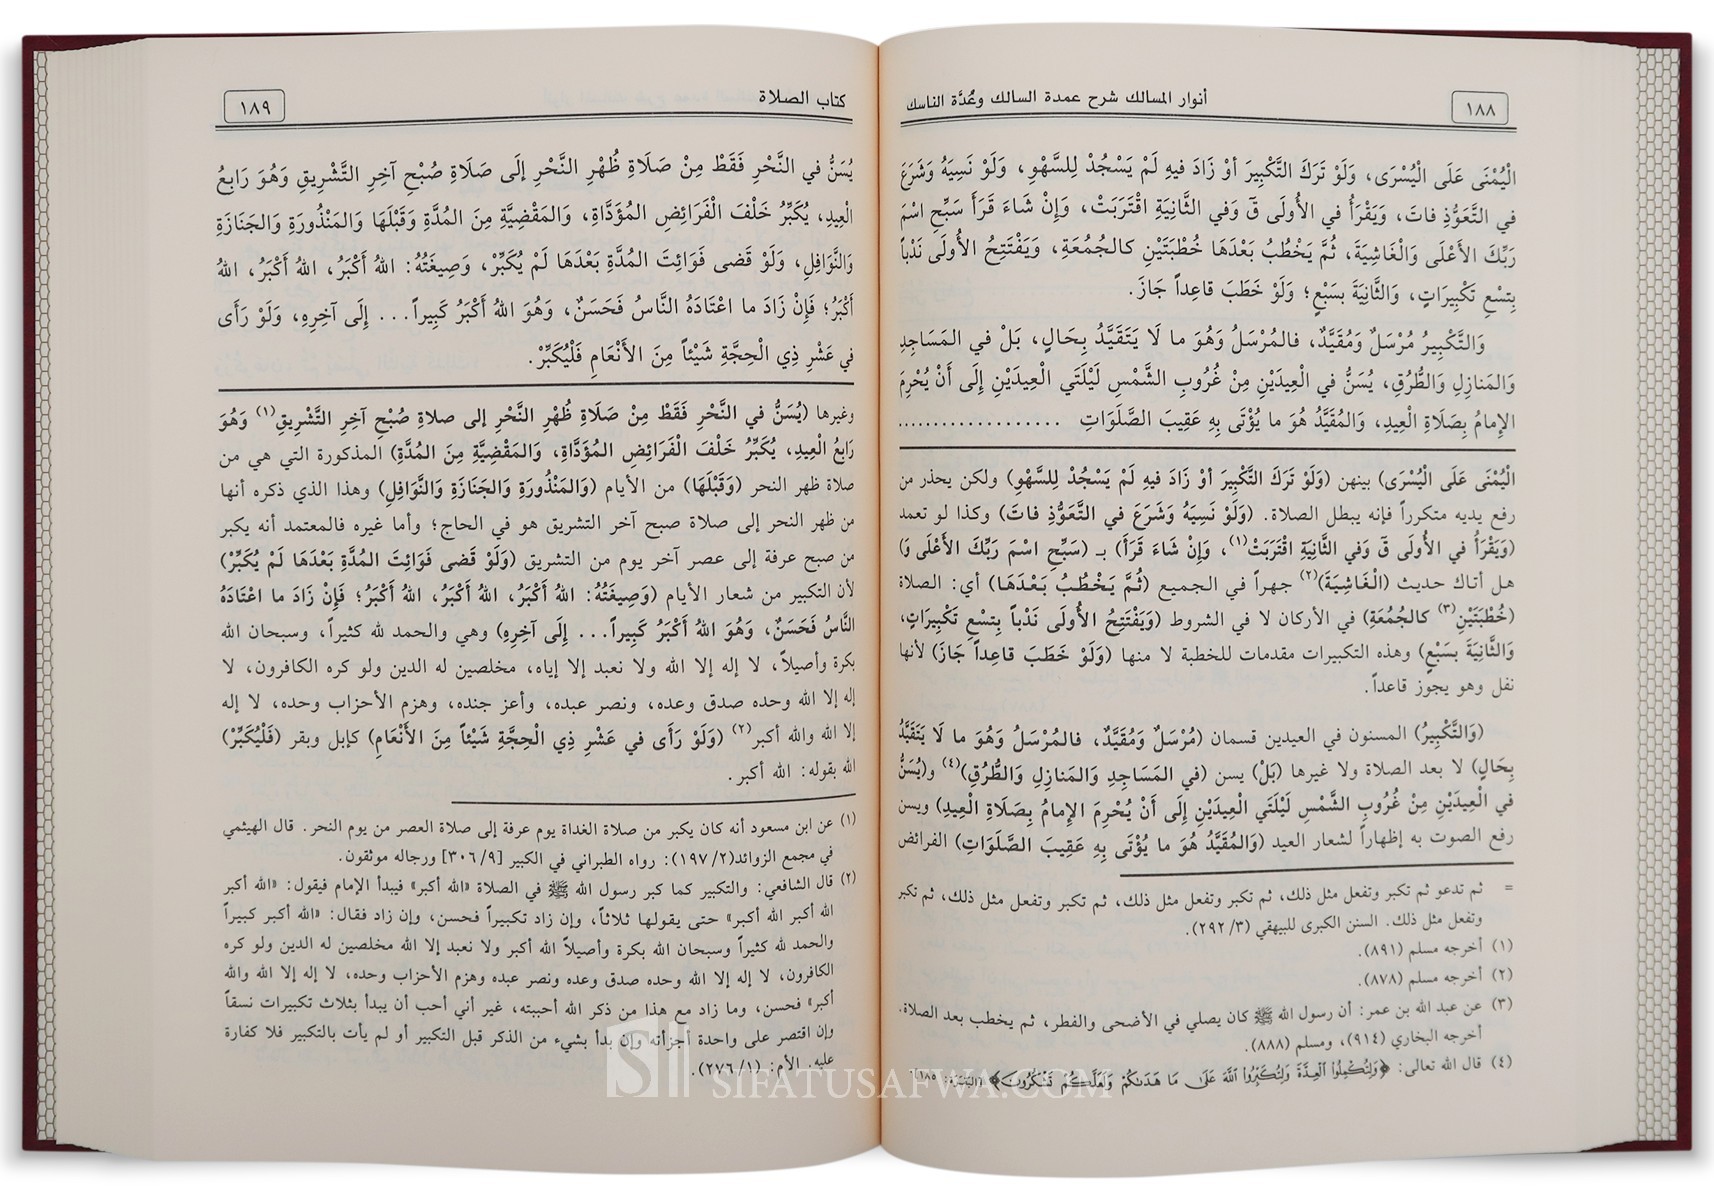 ١٨٨
أنوار المسالك شرح عمدة السالك وعُدَّة الناسك
الْيُمْنَى عَلَى الْيُسْرَى، وَلَوْ تَرَكَ التَّكْبِيرَ أوْ زَادَ فيهِ لَمْ يَسْجُدْ لِلسَّهْوِ، وَلَوْ نَسِيَهُ وَشَرَعَ
في التَّعَوُّذِ فاتَ، وَيَقْرَأُ في الأُولَى قَ وَفي الثَّانِيَةِ اقْتَرَبَتْ، وَإنْ شَاءَ قَرَأَ سَبِّحِ اسْمَ
رَبِّكَ الأَعْلَى وَالْغَاشِيَةَ، ثُمَّ يَخْطُبُ بَعْدَهَا خُطْبَتَيْنِ كالجُمُعَةِ، وَيَفْتَتِحُ الأُولَى نَدْباً
بِتِسْعِ تَكْبِيرَاتٍ، وَالثَّانِيَةَ بسَبْعٍ؛ وَلَوْ خَطَبَ قاعِداً جَازَ.
وَالتَّكْبِيرُ مُرْسَلٌ وَمُقَيَّدٌ، فالمُرْسَلُ وَهُوَ ما لَا يَتَقَيَّدُ بِحَالٍ، بَلْ في المَسَاجِدِ
وَالمَنازِلِ وَالطُّرُقِ، يُسَنُّ في الْعِيدَيْنِ مِنْ غُرُوبِ الشَّمْسِ لَيْلَتَيِ الْعِيدَيْنِ إلَى أَنْ يُحْرِمَ
الإمامُ بِصَلَاةِ الْعِيدِ، وَالمُقَيَّدُ هُوَ ما يُؤْتَى بِهِ عَقِيبَ الصَّلَوَاتِ ...................
الْيُمْنَى عَلَى الْيُسْرَى) بينهن (وَلَوْ تَرَكَ التَّكْبِيرَ أوْ زَادَ فيهِ لَمْ يَسْجُدْ لِلسَّهْوِ) ولكن يحذر من
رفع يديه متكرراً فإنه يبطل الصلاة. (وَلَوْ نَسِيَهُ وَشَرَعَ في التَّعَوُّذِ فاتَ) وكذا لو تعمد
(وَيَقْرَأُ في الأُولَى قَ وَفي الثَّانِيَةِ اقْتَرَبَتْ(١)، وَإنْ شَاءَ قَرَأَ) بـ (سَبِّحِ اسْمَ رَبِّكَ الأَعْلَى وَ)
هل أتاك حديث (الْغَاشِيَةَ)(٢) جهراً في الجميع (ثُمَّ يَخْطُبُ بَعْدَهَا) أي: الصلاة
(خُطْبَتَيْنِ(٣) كالجُمُعَةِ) في الأركان لا في الشروط (وَيَفْتَتِحُ الأُولَى نَدْباً بِتِسْعِ تَكْبِيرَاتٍ،
وَالثَّانِيَةَ بسَبْعٍ) وهذه التكبيرات مقدمات للخطبة لا منها (وَلَوْ خَطَبَ قاعِداً جَازَ) لأنها
نفل وهو يجوز قاعداً.
(وَالتَّكْبِيرُ) المسنون في العيدين قسمان (مُرْسَلٌ وَمُقَيَّدٌ، فالمُرْسَلُ وَهُوَ ما لَا يَتَقَيَّدُ
بِحَالٍ) لا بعد الصلاة ولا غيرها (بَلْ) يسن (في المَسَاجِدِ وَالمَنازِلِ وَالطُّرُقِ)(٤) و(يُسَنُّ
في الْعِيدَيْنِ مِنْ غُرُوبِ الشَّمْسِ لَيْلَتَيِ الْعِيدَيْنِ إلَى أَنْ يُحْرِمَ الإمامُ بِصَلَاةِ الْعِيدِ) ويسن
رفع الصوت به إظهاراً لشعار العيد (وَالمُقَيَّدُ هُوَ ما يُؤْتَى بِهِ عَقِيبَ الصَّلَوَاتِ) الفرائض
= ثم تدعو ثم تكبر وتفعل مثل ذلك، ثم تكبر وتفعل مثل ذلك، ثم تكبر وتفعل مثل ذلك، ثم تكبر
وتفعل مثل ذلك. السنن الكبرى للبيهقي (٢٩٢/٣).
(١) أخرجه مسلم (٨٩١).
(٢) أخرجه مسلم (٨٧٨).
(٣) عن عبد الله بن عمر: أن رسول الله ﷺ كان يصلي في الأضحى والفطر، ثم يخطب بعد الصلاة.
أخرجه البخاري (٩١٤)، ومسلم (٨٨٨).
(٤) قال الله تعالى: ﴿وَلِتُكْمِلُوا۟ ٱلْعِدَّةَ وَلِتُكَبِّرُوا۟ ٱللَّهَ عَلَىٰ مَا هَدَىٰكُمْ وَلَعَلَّكُمْ تَشْكُرُونَ﴾ [البَقَرَة: ١٨٥].
كتاب الصلاة
١٨٩
يُسَنُّ في النَّحْرِ فَقَطْ مِنْ صَلَاةِ ظُهْرِ النَّحْرِ إلَى صَلَاةِ صُبْحِ آخِرِ التَّشْرِيقِ وَهُوَ رَابِعُ
الْعِيدِ، يُكَبِّرُ خَلْفَ الْفَرَائِضِ المُؤَدَّاةِ، وَالمَقْضِيَّةِ مِنَ المُدَّةِ وَقَبْلَهَا وَالمَنْذُورَةِ وَالجَنَازَةِ
وَالنَّوَافِلِ، وَلَوْ قضى فَوَائِتَ المُدَّةِ بَعْدَهَا لَمْ يُكَبِّرْ، وَصِيغَتُهُ: اللهُ أَكْبَرُ، اللهُ أكْبَرُ، اللهُ
أكْبَرُ؛ فَإنْ زَادَ ما اعْتَادَهُ النَّاسُ فَحَسَنٌ، وَهُوَ اللهُ أَكْبَرُ كَبِيراً... إلَى آخِرِهِ، وَلَوْ رَأَى
في عَشْرِ ذِي الْحِجَّةِ شَيْئاً مِنَ الأَنْعَامِ فَلْيُكَبِّرْ.
وغيرها (يُسَنُّ في النَّحْرِ فَقَطْ مِنْ صَلَاةِ ظُهْرِ النَّحْرِ إلى صلاةِ صُبْحِ آخِرِ التَّشْرِيقِ(١) وَهُوَ
رَابِعُ الْعِيدِ، يُكَبِّرُ خَلْفَ الْفَرَائِضِ المُؤَدَّاةِ، وَالمَقْضِيَّةِ مِنَ المُدَّةِ) المذكورة التي هي من
صلاة ظهر النحر (وَقَبْلَهَا) من الأيام (وَالمَنْذُورَةِ وَالجَنَازَةِ وَالنَّوَافِلِ) وهذا الذي ذكره أنها
من ظهر النحر إلى صلاة صبح آخر التشريق هو في الحاج؛ وأما غيره فالمعتمد أنه يكبر
من صبح عرفة إلى عصر آخر يوم من التشريق (وَلَوْ قضى فَوَائِتَ المُدَّةِ بَعْدَهَا لَمْ يُكَبِّرْ)
لأن التكبير من شعار الأيام (وَصِيغَتُهُ: اللهُ أَكْبَرُ، اللهُ أكْبَرُ، اللهُ أكْبَرُ؛ فَإنْ زَادَ ما اعْتَادَهُ
النَّاسُ فَحَسَنٌ، وَهُوَ اللهُ أَكْبَرُ كَبِيراً... إلَى آخِرِهِ) وهي والحمد لله كثيراً، وسبحان الله
بكرة وأصيلاً، لا إله إلا الله ولا نعبد إلا إياه، مخلصين له الدين ولو كره الكافرون، لا
إله إلا الله وحده صدق وعده، ونصر عبده، وأعز جنده، وهزم الأحزاب وحده، لا إله
إلا الله والله أكبر(٢) (وَلَوْ رَأى في عَشْرِ ذِي الْحِجَّةِ شَيْئاً مِنَ الأنْعَامِ) كإبل وبقر (فَلْيُكَبِّرْ)
الله بقوله: الله أكبر.
(١) عن ابن مسعود أنه كان يكبر من صلاة الغداة يوم عرفة إلى صلاة العصر من يوم النحر. قال الهيثمي
في مجمع الزوائد (١٩٧/٢): رواه الطبراني في الكبير [٣٠٦/٩] ورجاله موثقون.
(٢) قال الشافعي: والتكبير كما كبر رسول الله ﷺ في الصلاة «الله أكبر» فيبدأ الإمام فيقول: «الله أكبر
الله أكبر الله أكبر» حتى يقولها ثلاثاً، وإن زاد تكبيراً فحسن، وإن زاد فقال: «الله أكبر كبيراً
والحمد لله كثيراً وسبحان الله بكرة وأصيلاً الله أكبر ولا نعبد إلا الله مخلصين له الدين ولو كره
الكافرون، لا إله إلا الله وحده صدق وعده ونصر عبده وهزم الأحزاب وحده، لا إله إلا الله والله
أكبر» فحسن، وما زاد مع هذا من ذكر الله أحببته، غير أني أحب أن يبدأ بثلاث تكبيرات نسقاً
وإن اقتصر على واحدة أجزأته وإن بدأ بشيء من الذكر قبل التكبير أو لم يأت بالتكبير فلا كفارة
عليه. الأم: (٢٧٦/١).
SIFATUSAFWA.COM